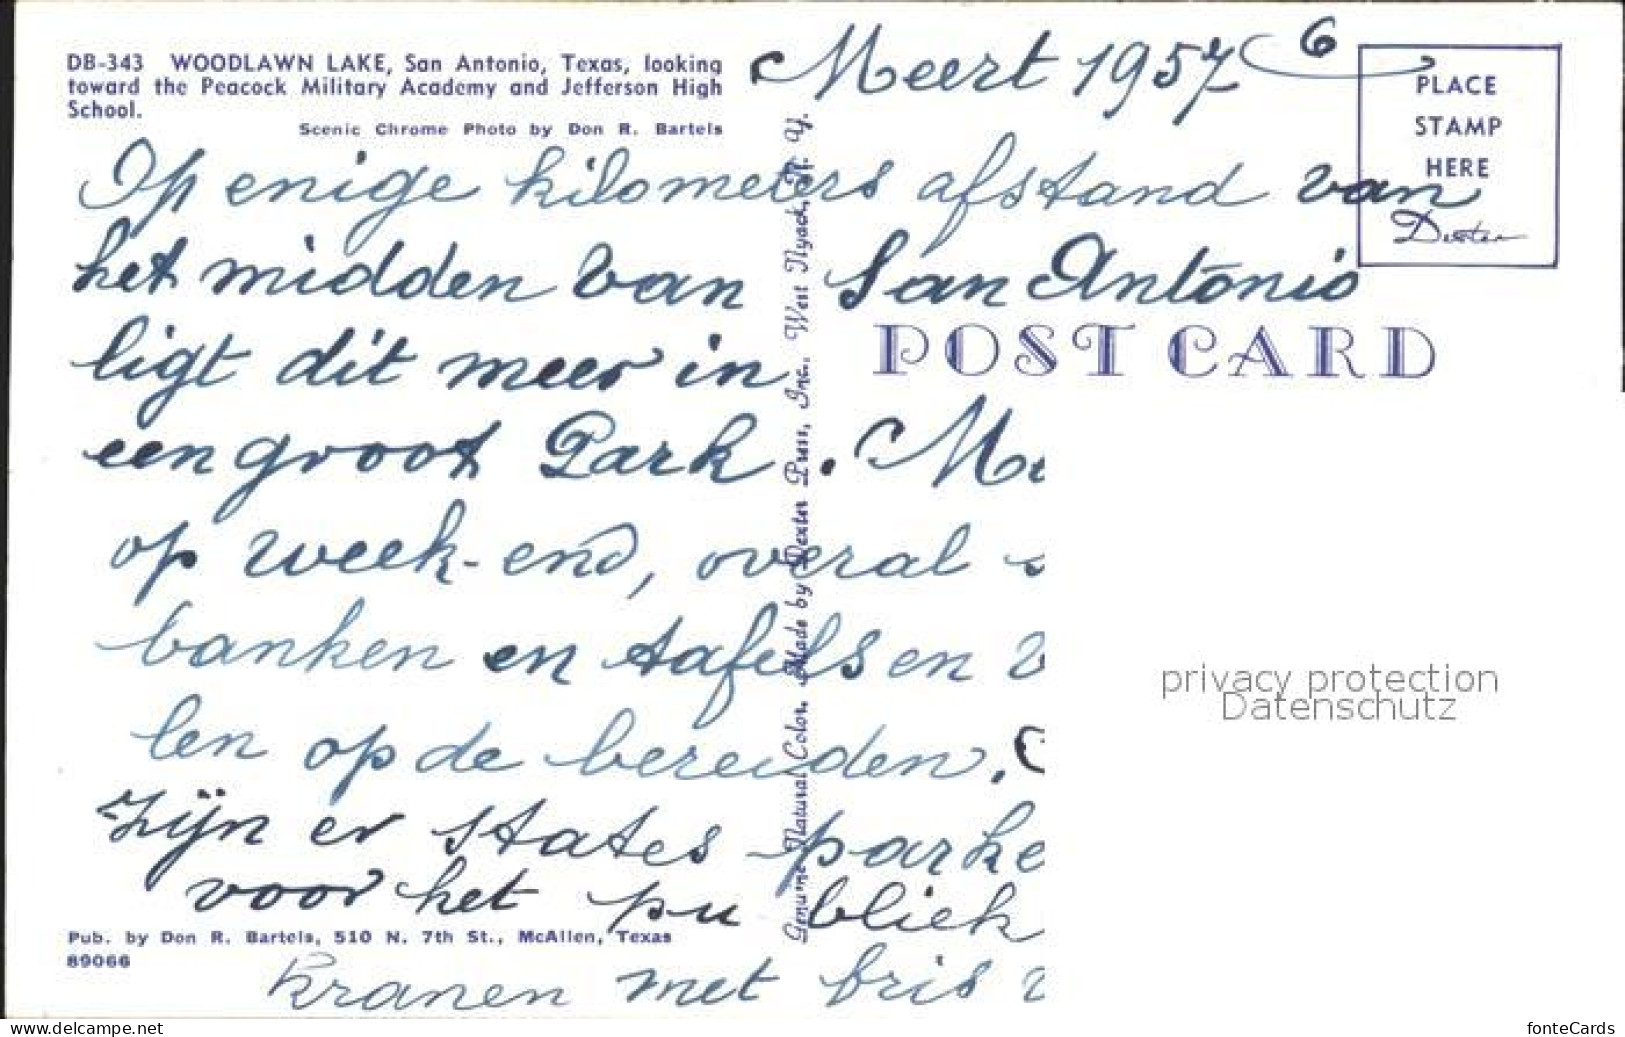 DB-343 WOODLAWN LAKE, San Antonio, Texas, looking
toward the Peacock Military Academy and Jefferson High
School.
Scenic Chrome Photo by Don R. Bartels
Meert 1957 6
PLACE
STAMP
HERE
Dexter
Op enige kilometers afstand van
het midden van San Antonio
ligt dit meer in
POST CARD
een groot Park. M
op week-end, overal
banken en tafels en
len op de bereiden.
zijn er states parke
voor het publiek
kranen met fris
Genuine Natural Color. Made by Dexter Press, Inc., West Nyack, N. Y.
Pub. by Don R. Bartels, 510 N. 7th St., McAllen, Texas
89066
privacy protection
Datenschutz
www.delcampe.net
fonteCards